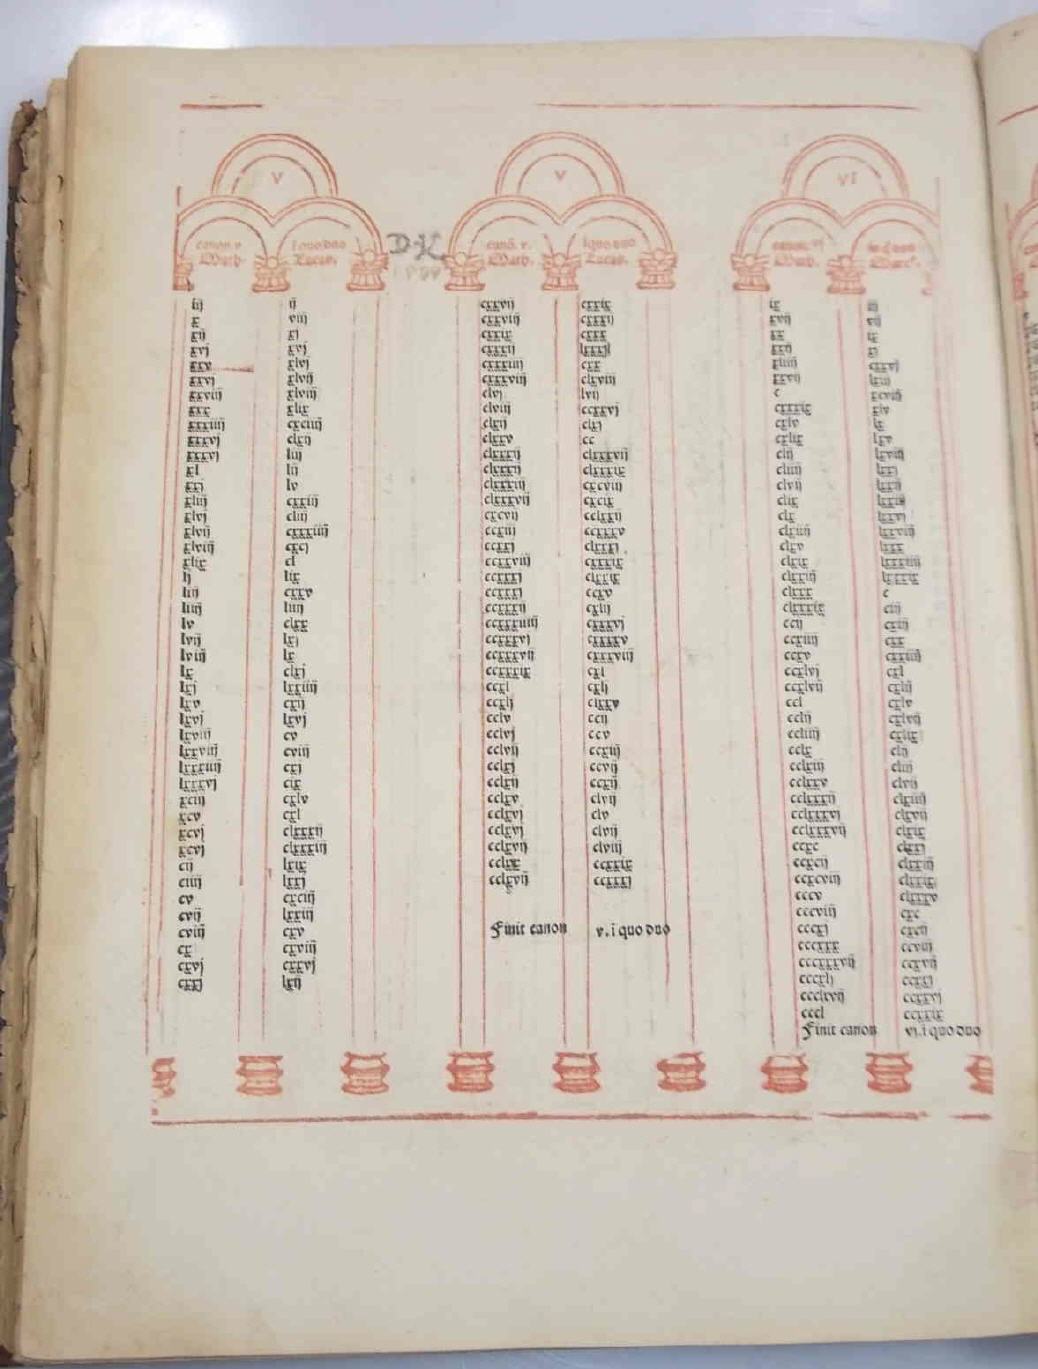 V V VI
canon v i quo duo canō. v. i quo duo canon. vj in quo duo
Math. Lucas. Math. Lucas. Math. Marc⁹.
D.K.
iij ij
x viij
xij xj
xvj xvj
xxv xlvj
xxvj xlvij
xxviij xlviij
xxx xlix
xxxiiij cxciiij
xxxvj clxij
xxxvj liij
xl lij
xxj lv
xliij cxxiij
xlvj cliij
xlvij cxxxiiij
xlviij cxcj
xlix cl
lj lix
liij cxxv
liiij liiij
lv clxx
lvij lxj
lviij lx
lx clxj
lxj lxxiiij
lxv cxij
lxvj lxvj
lxviij cv
lxxviij cviij
lxxxiiij cxj
lxxxvj cix
xciij cxlv
xcv cxl
xcvj clxxxij
xcvj clxxxiiij
cij lxix
ciiij lxxj
cv cxciij
cvij lxxiij
cviij cxv
cx cxviij
cxvj cxxvj
cxxj lxij
cxxvij cxxix
cxxviij cxxxij
cxxix cxxx
cxxxij lxxxj
cxxxiiij cxx
cxxxviij clxviij
clvj lvij
clviij ccxxvj
clxij clxj
clxxv cc
clxxxij clxxxvij
clxxxij clxxxix
clxxxiij cxcviij
clxxxvij cxcix
cxcvij cclxxij
ccxiij ccxxxv
ccxxj clxxxj
ccxxviij cxxxix
ccxxxj clxxix
ccxxxj ccxv
ccxxxij cxlij
ccxxxiiij cxxxvj
ccxxxvj cxxxxv
ccxxxvij cxxxviij
ccxxxix cxl
ccxl cxlj
ccxlj clxxv
cclv ccij
cclvj ccv
cclvij ccxiij
cclxj ccvij
cclxij ccxij
cclxv clvij
cclxvj clv
cclxvj clvij
cclxvij clviij
cclxx ccxxix
cclxvij ccxxxj
Finit canon v. i quo duo
ix iij
xvij vij
xx ix
xxij xj
xliiij cxxvj
xxvij lxiij
c xcviij
cxxxix xlv
cxlv lx
cxlix lxv
clij lxviij
cliiij lxxj
clvij lxxij
clix lxxiij
clx lxxvj
clxiiij lxxviij
clxv lxxx
clxix lxxxiiij
clxxiij lxxxix
clxxx c
clxxxix ciij
ccij cxiij
ccxiiij cxx
ccxv cxxiiij
ccxlvj cxl
ccxlvij cxliij
ccl cxlv
cclij cxlvij
ccliiij cxlix
cclx clij
cclxiij cliij
cclxxv clvij
cclxxxij clxiiij
cclxxxvj clxvij
cclxxxvij clxix
ccxc clxxj
ccxcij clxxiij
ccxcviij clxxix
cccv clxxxv
cccviij cxc
cccxj cxcij
cccxxx ccviij
cccxxxvij ccxvij
cccxlj ccxxj
ccclxvij ccxxvj
cccl ccxxix
Finit canon vj. i quo duo